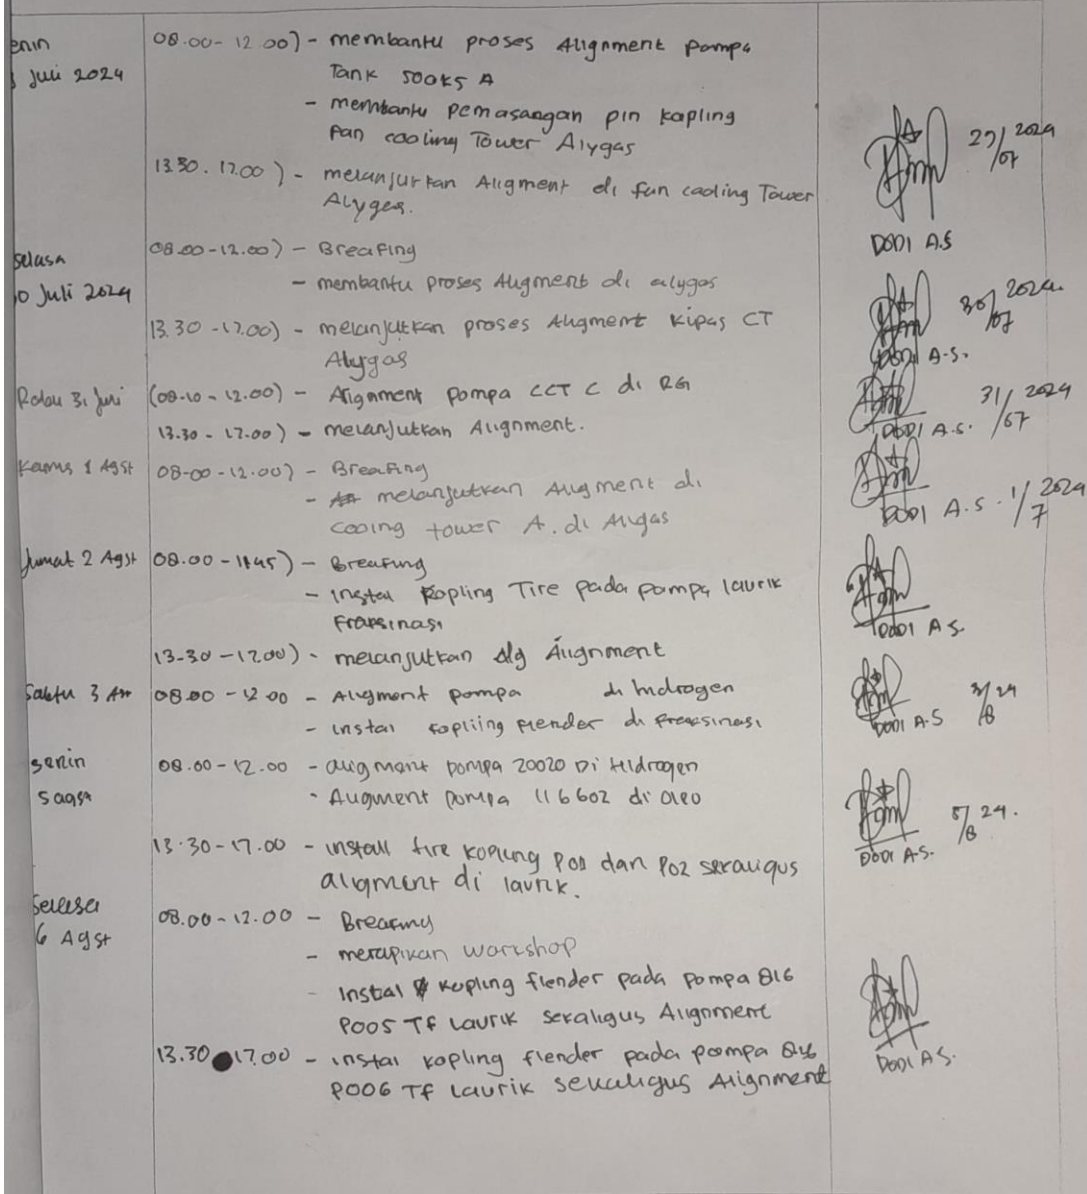 enin 08.00-12.00) - membantu proses Alignment pompa
Juli 2024 Tank 500k5 A
- membantu pemasangan pin kopling
Fan cooling Tower Alygas
27/07 2024
13.30. 17.00) - melanjutkan Aligment di fan cooling Tower
Alygas.
DODI A.S
selasa 08.00-12.00) - Breafing
0 Juli 2024 - membantu proses Aligment di alygas
30/07 2024.
13.30 -17.00) - melanjutkan proses Aligment kipas CT
Alygas
DODI A.S.
Rabu 31 Juli (08.10 - 12.00) - Alignment pompa CCT C di RG
31/07 2024
13.30 - 17.00) - melanjutkan Alignment.
DODI A.S.
Kamis 1 Agst 08-00-12.00) - Breafing
- melanjutkan Aligment di
cooing tower A. di Alygas
DODI A.S. 1/7 2024
Jumat 2 Agst 08.00-1145) - Breafing
- instal kopling Tire pada pompa laurik
Fraksinasi
DODI A S.
13-30-1700) - melanjutkan Alignment
Sabtu 3 08.00 -12.00 - Aligment pompa di hidrogen
- instal kopliing flender di fraksinasi
DODI A.S 3/8 24
senin 08.00-12.00 - aligment pompa 20020 Di Hidrogen
5 agst - Aligment pompa 116602 di oleo
5/8 24.
DODI A.S.
13.30-17.00 - install tire kopling P01 dan P02 sekaligus
aligment di laurik.
Selasa 08.00-12.00 - Breafing
6 Agst - merapikan workshop
- Instal kopling flender pada pompa 816
P005 TF Laurik sekaligus Alignment
13.30 17.00 - instal kopling flender pada poompa 816
P006 TF Laurik sekaligus Alignment
DODI A S.